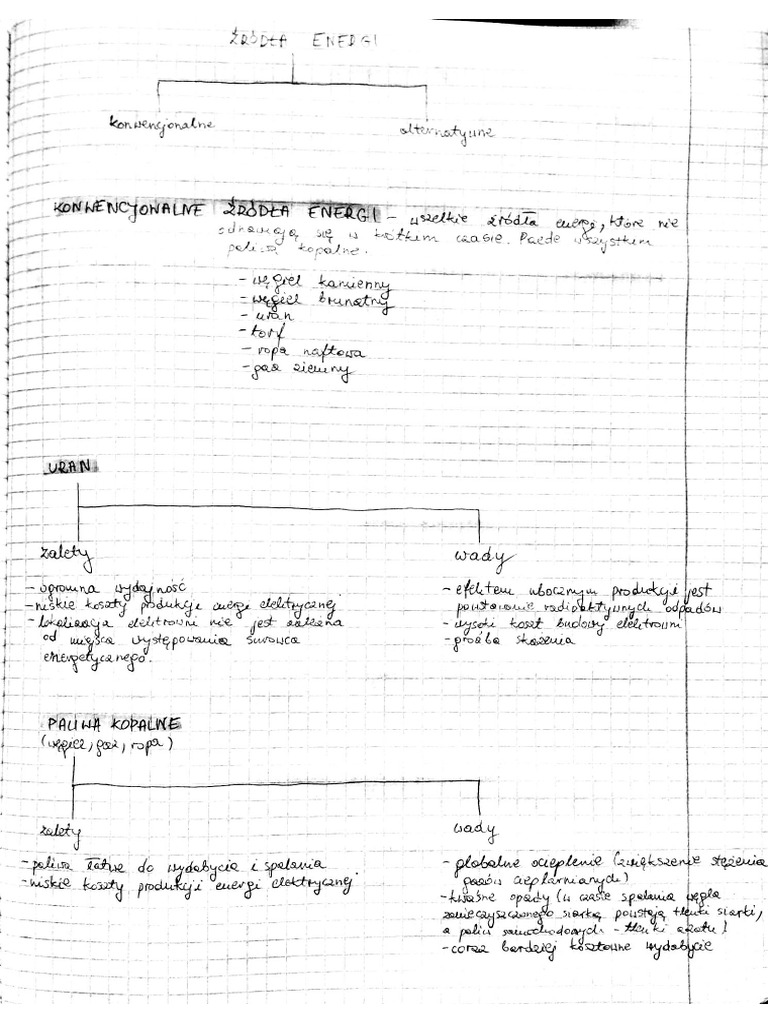 ŹRÓDŁA ENERGI
konwencjonalne
alternatywne
KONWENCJONALNE ŹRÓDŁA ENERGI - wszelkie źródła energi, które nie
odnawiają się w krótkim czasie. Przede wszystkim
paliwa kopalne.
- węgiel kamienny
- węgiel brunatny
- uran
- torf
- ropa naftowa
- gaz ziemny
URAN
zalety
wady
- ogromna wydajność
- niskie koszty produkcje energi elektrycznej
- lokalizacja elektrowni nie jest zależna
od miejsca występowania surowca
energetycznego.
- efektem ubocznym produkcji jest
powstawanie radioaktywnych odpadów
- wysoki koszt budowy elektrowni
- groźba skażenia
PALIWA KOPALNE
(węgiel, gaz, ropa)
zalety
wady
- paliwa łatwe do wydobycia i spalania
- niskie koszty produkcji energi elektrycznej.
- globalne ocieplenie (zwiększenie stężenia
gazów cieplarnianych)
- kwaśne opady (w czasie spalania węgla
zanieczyszczonego siarką powstają tlenki siarki,
a paliw samochodowych - tlenki azotu)
- coraz bardziej kosztowne wydobycie